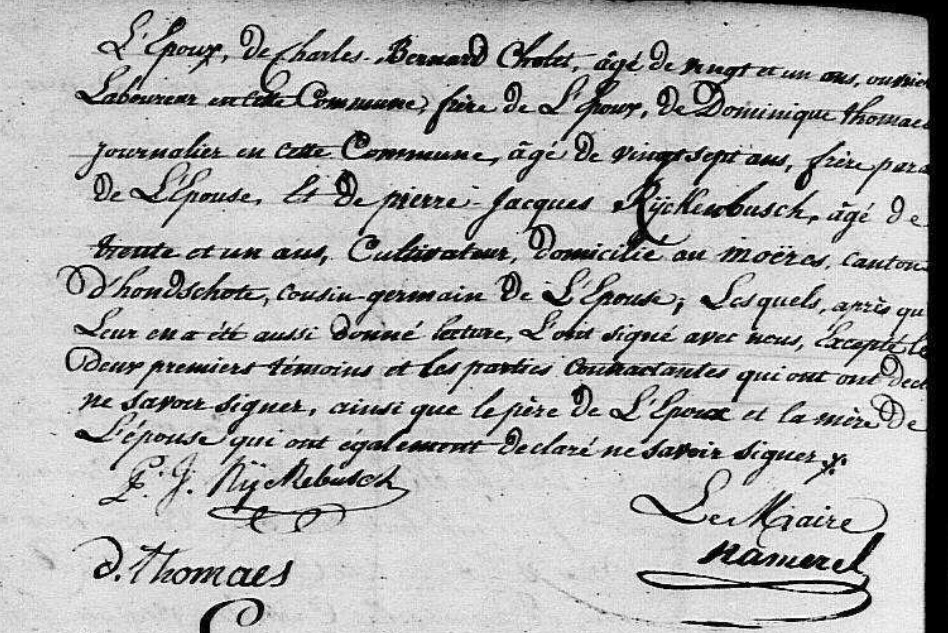 L'Epoux, de Charles Bernard Cholet, âgé de vingt et un ans, ouvrier
Laboureur en cette Commune, frère de L'Epoux, de Dominique thomaes
journalier en cette Commune, âgé de vingt sept ans, frère para
de L'Epouse, Et de pierre Jacques Rÿckenbusch, âgé de
trente et un ans, Cultivateur, domicilié au moëres, canton
D'hondschote, cousin-germain de L'Epouse; Lesquels, après qu
Leur en a été aussi donné lecture, L'ont signé avec nous, Excepté le
deux premiers témoins et les parties Contractantes qui ont ont decl
ne savoir signer, ainsi que le père de L'Epoux et la mère de
L'épouse qui ont également declaré ne savoir signer
P. J. Rÿckebusch
Le Maire
namerel
d. thomaes